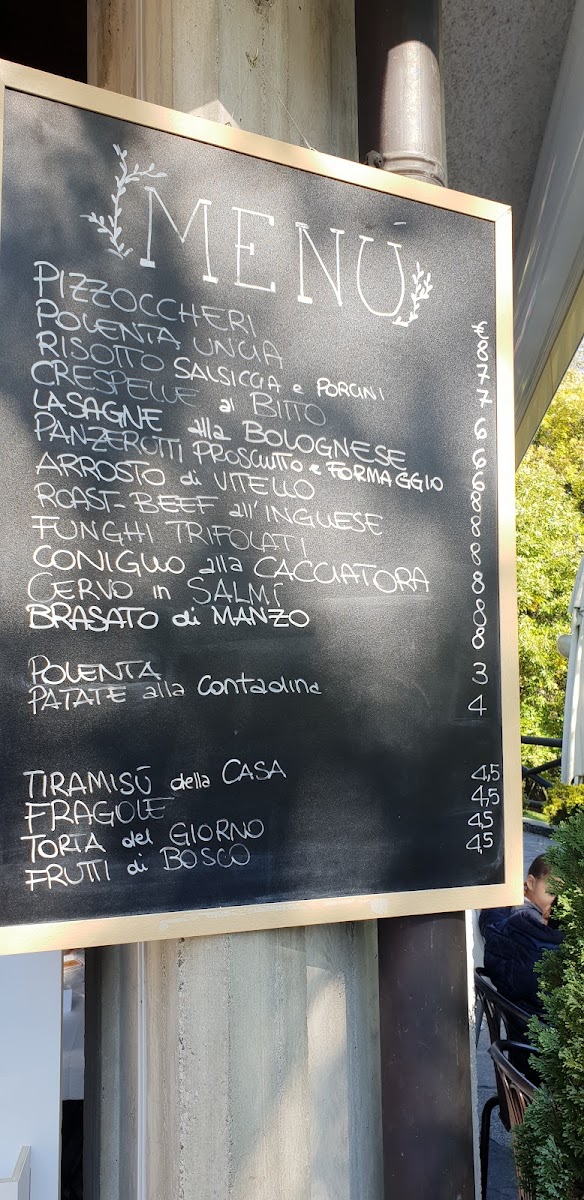 MENÙ
€
PIZZOCCHERI 8
POLENTA UNCIA 7
RISOTTO SALSICCIA e PORCINI 7
CRESPELLE al BITTO 6
LASAGNE alla BOLOGNESE 6
PANZEROTTI PROSCIUTTO e FORMAGGIO 6
ARROSTO di VITELLO 8
ROAST-BEEF all'INGLESE 8
FUNGHI TRIFOLATI 8
CONIGLIO alla CACCIATORA 8
CERVO in SALMÌ 8
BRASATO di MANZO 8
POLENTA 3
PATATE alla contadina 4
TIRAMISÙ della CASA 4,5
FRAGOLE 4,5
TORTA del GIORNO 4,5
FRUTTI di BOSCO 4,5